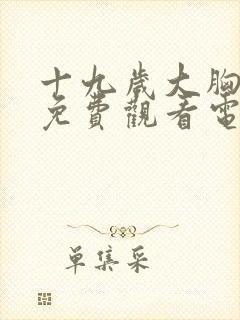 十九歲大胸
免費觀看電
單集采